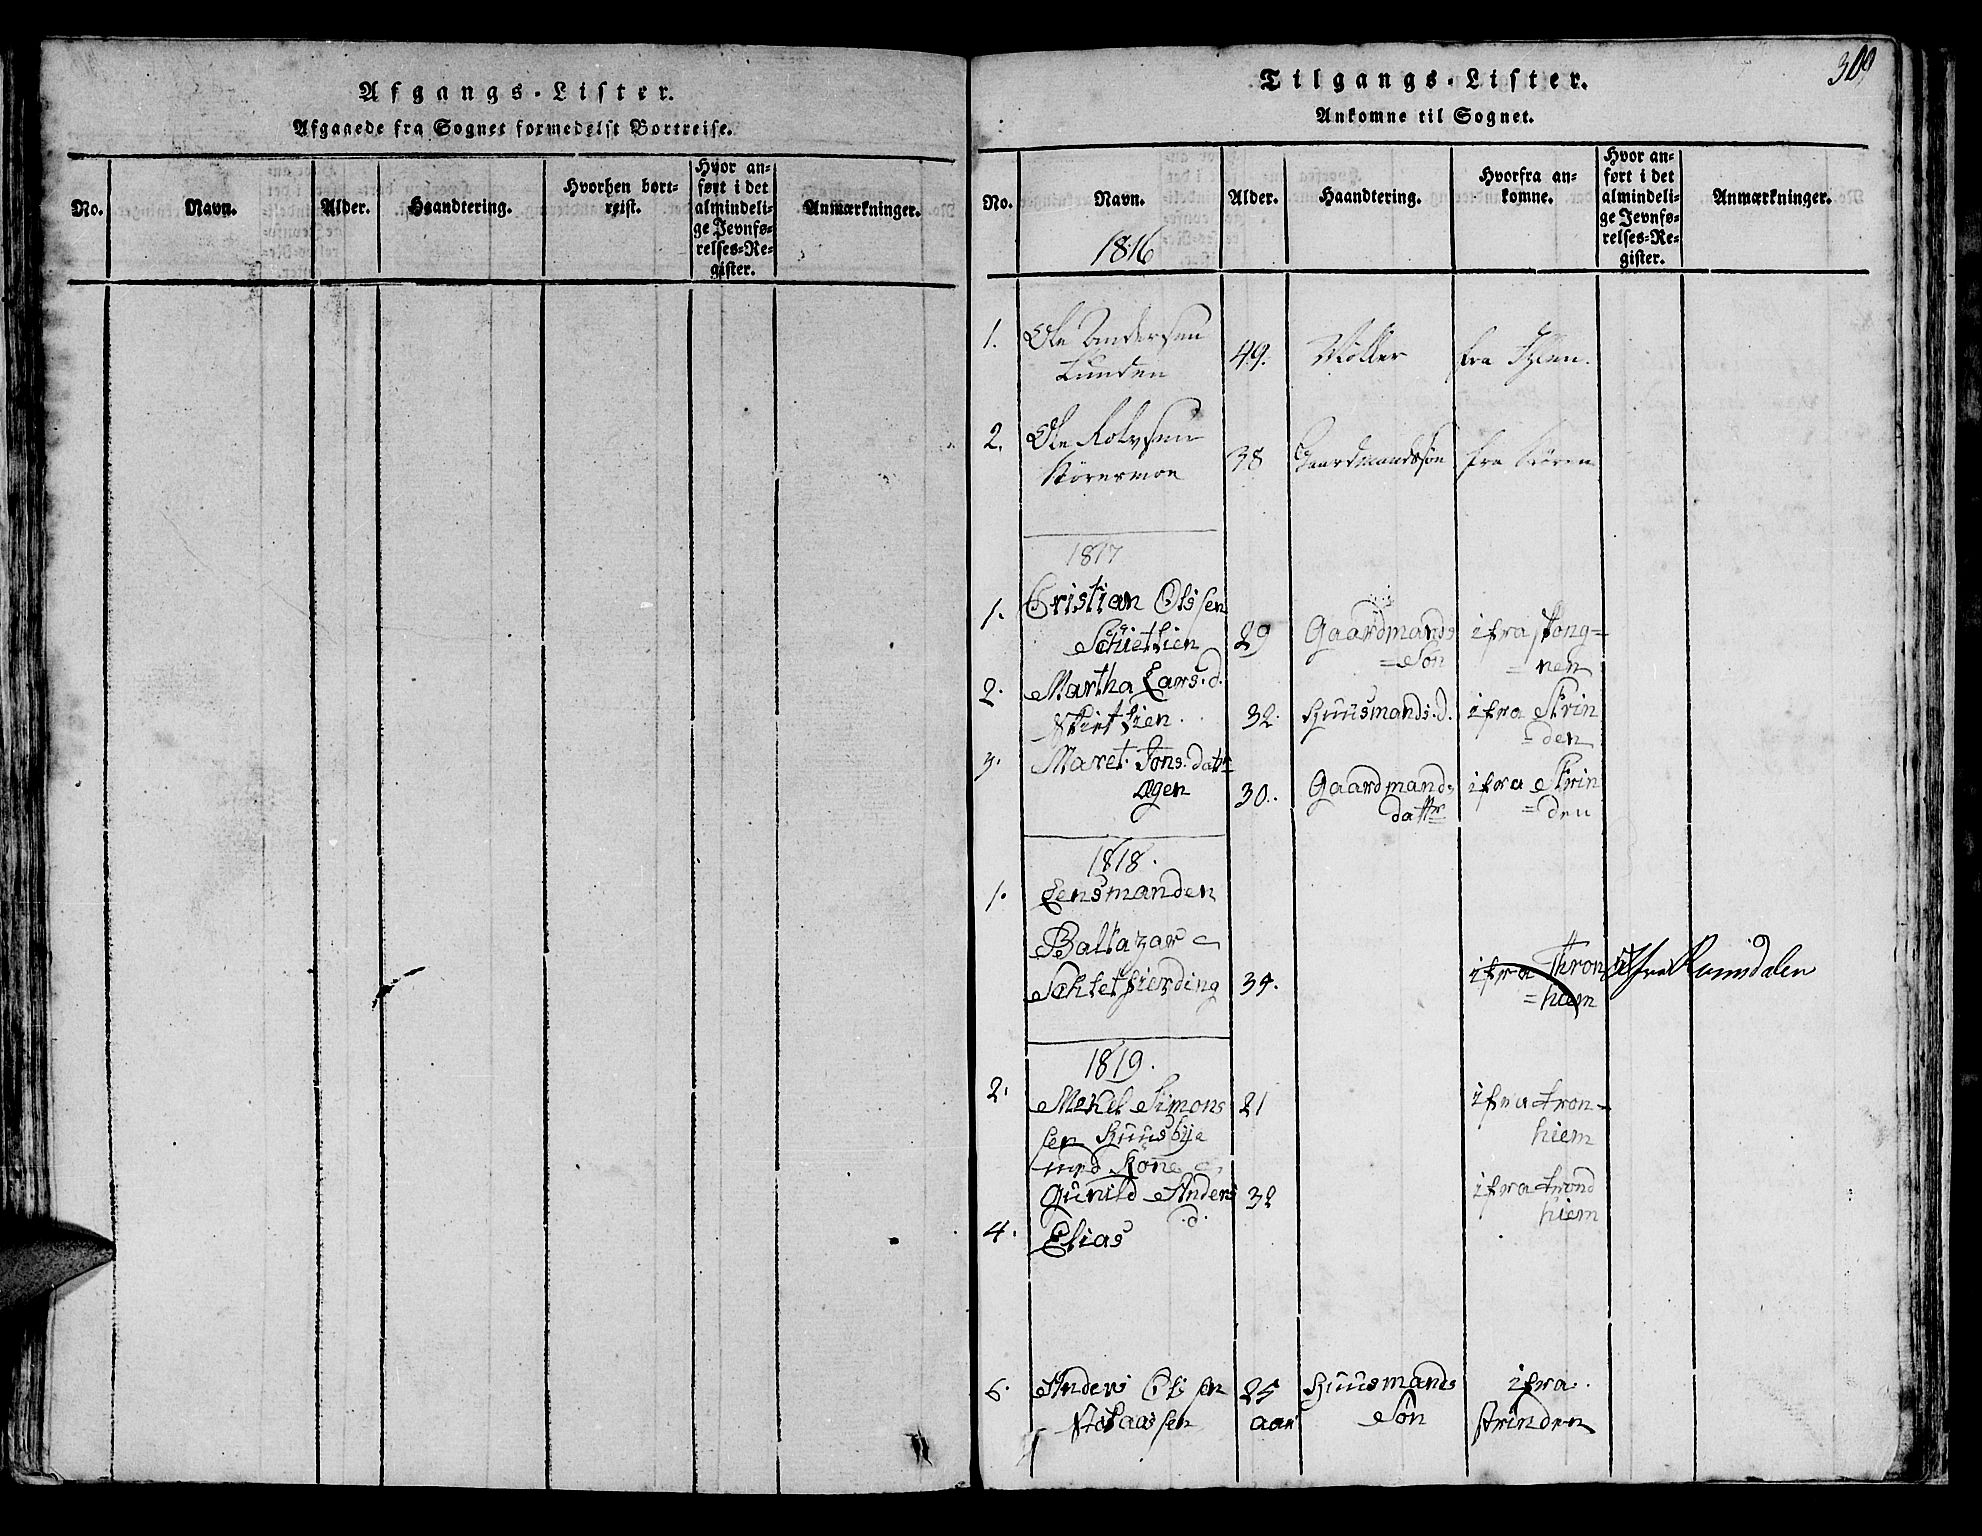 Afgangs-Lister.
Afgaaede fra Sognet formedelst Bortreise.
No.
Navn.
Alder.
Haandtering.
Hvorhen bort-
reist.
Hvor an-
ført i det
almindeli-
ge Jevnfø-
relses-Re-
gister.
Anmærkninger.
309
Tilgangs-Lister.
Ankomne til Sognet.
No.
Navn.
Alder.
Haandtering.
Hvorfra an-
komne.
Hvor an-
ført i det
almindeli-
ge Jevnfø-
relses-Re-
gister.
Anmærkninger.
1816
1. Ole Andersen
Lunden 49. Møller fra
2. Ole Rolvsen
Störenmoe 38 Gaardmandssøn fra Stören
1817
1. Cristian Olssen
29 Gaardmands ifra
=Søn =nen
2. Martha Lars.d.
32. Huusmands.d. ifra Strin
=den
3. Maret Jons.datr
Øgen 30. Gaardmands ifra Strin
dattr =den
1818.
1. Lensmanden
Baltazar
Schletfierding 34. ifra Thron ifra Romsdalen
=hiem
1819.
2. Mekel Simons 21 ifra tron-
sen Huusbÿe hiem
med Kone
Gunild Anders 32 ifra trond
.d. hiem
4. Elias
6. Anders Olssen 25 Huusmands ifra
aar Søn Strinden